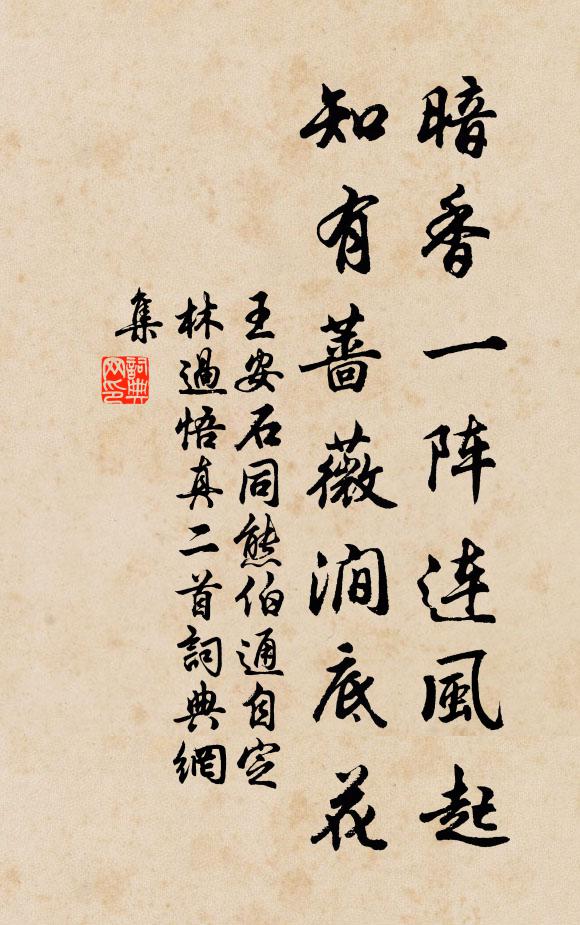 暗香一阵连風起
知有蔷薇澗底花
王安石同熊伯通自定
林過悟真二首詞典網
集
詞典
网印